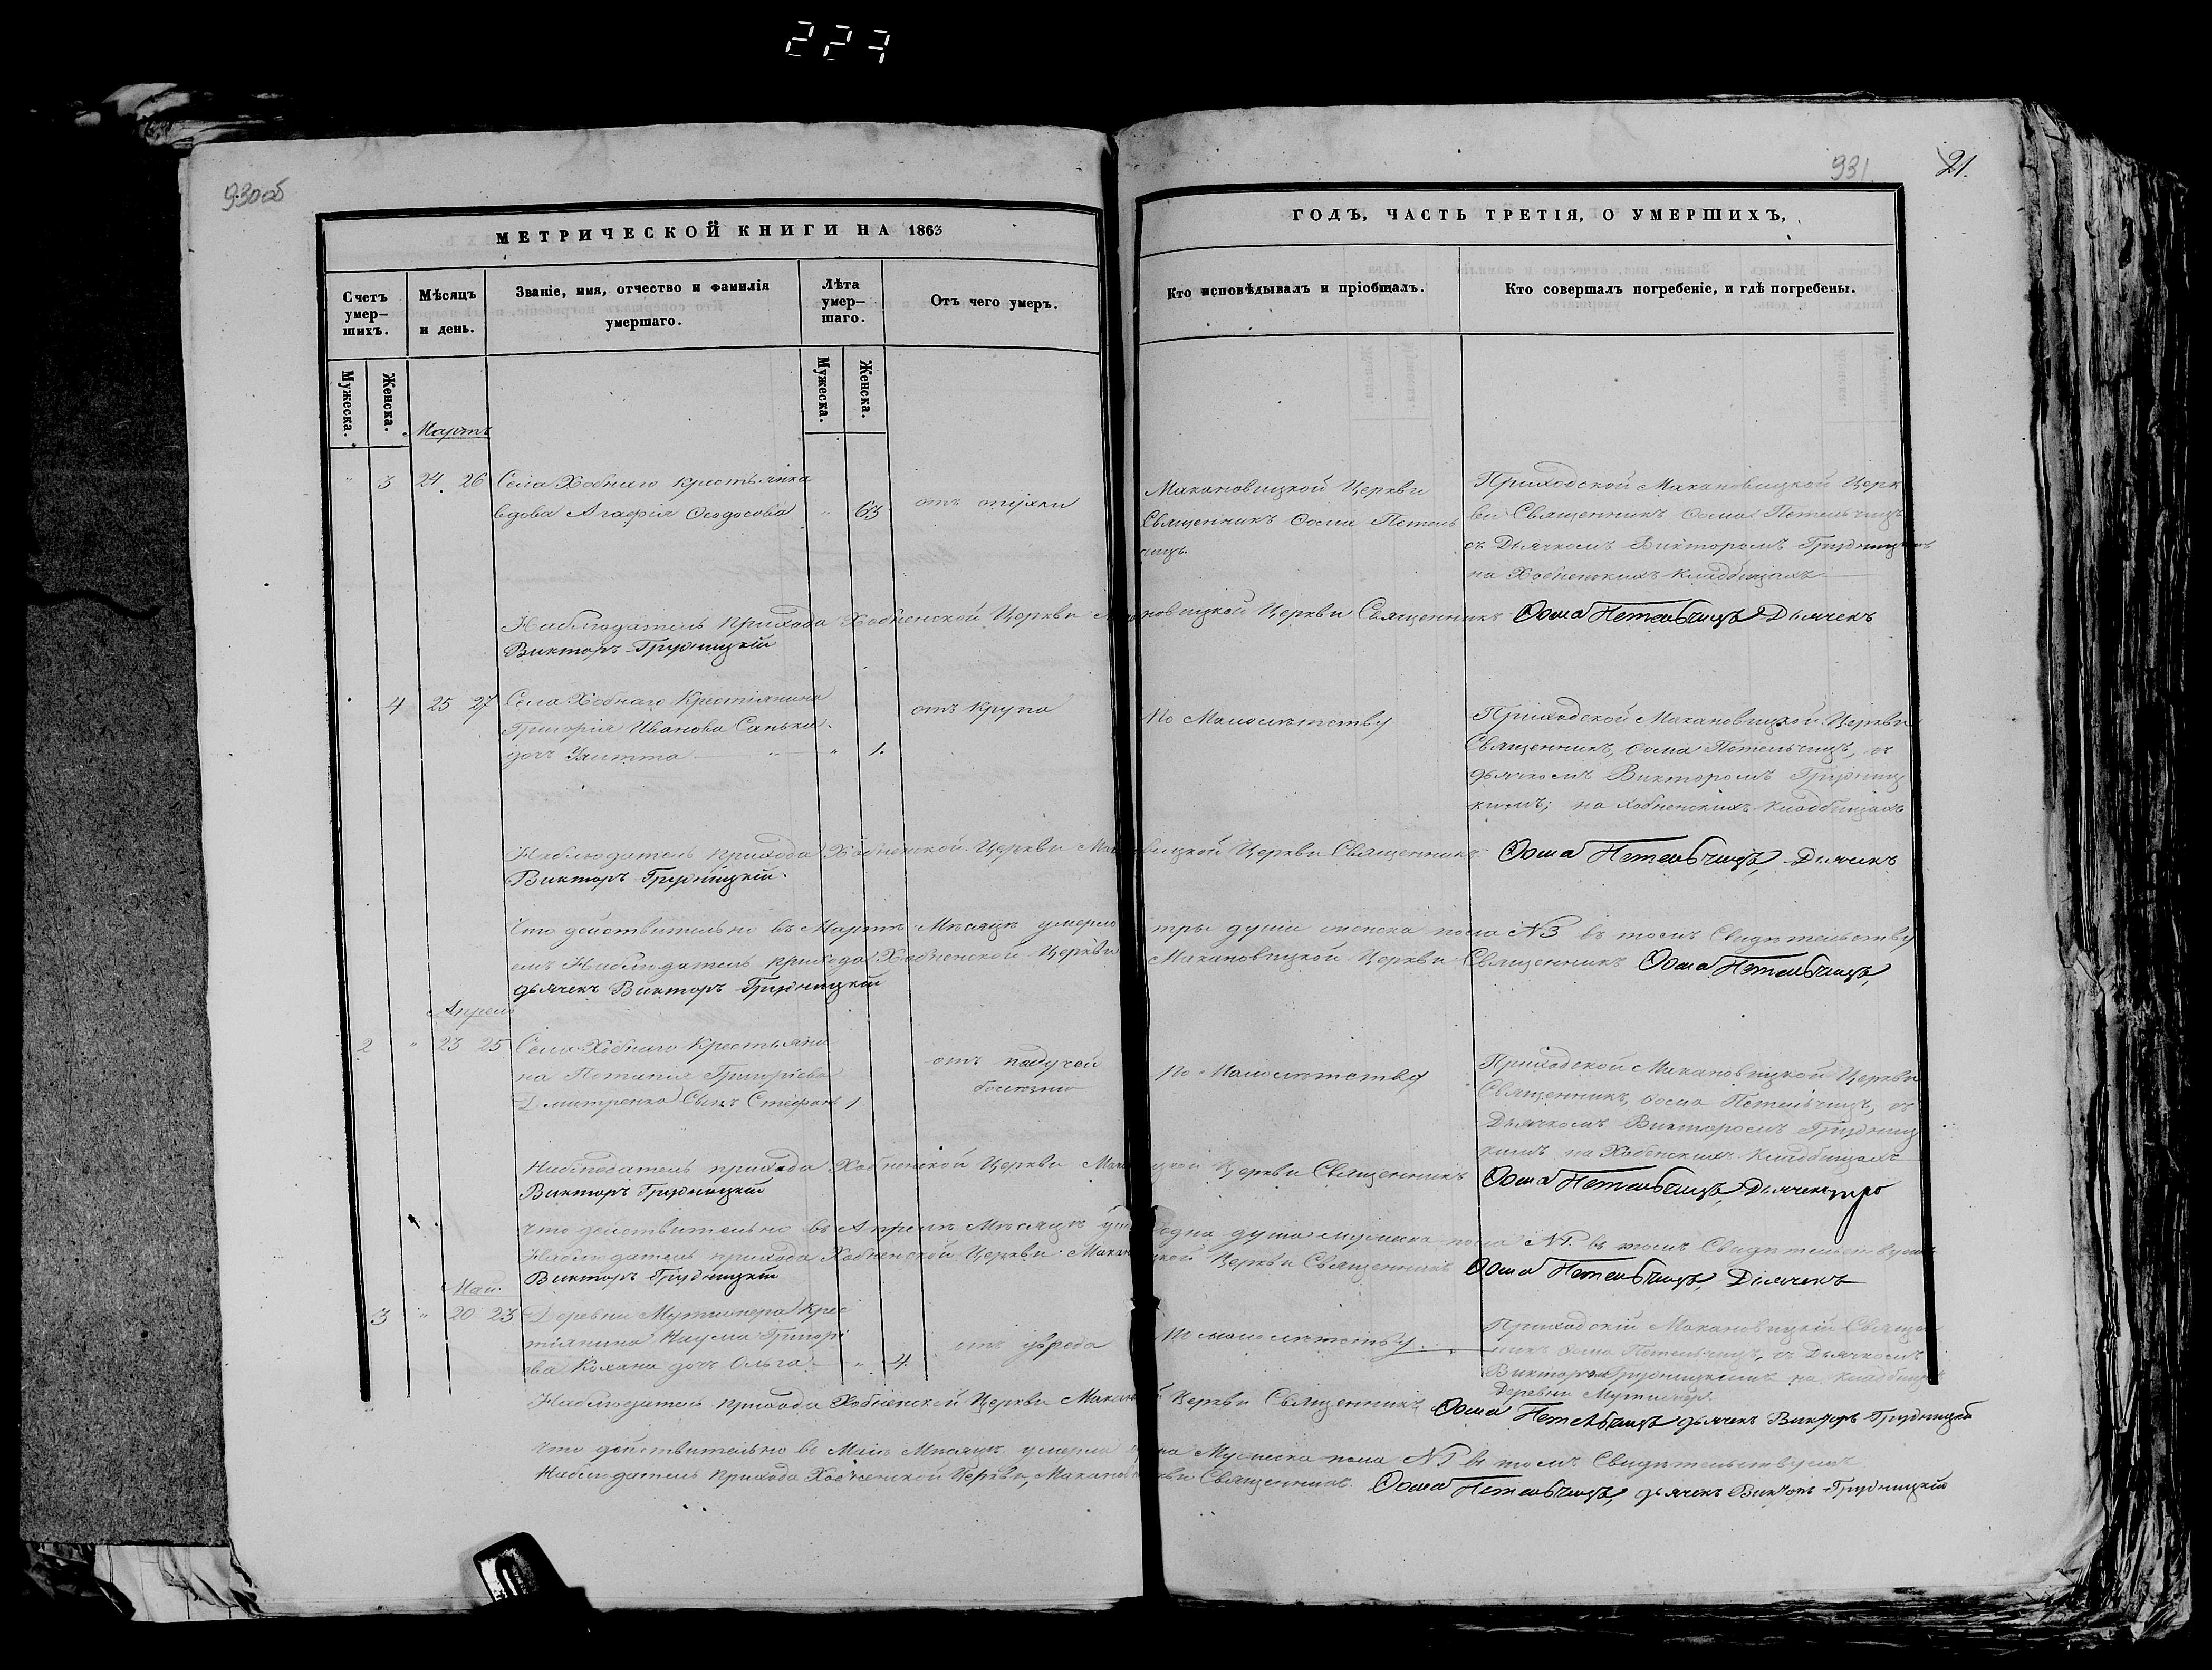 227
930об
931
21.
МЕТРИЧЕСКОЙ КНИГИ НА 1863
ГОДЪ, ЧАСТЬ ТРЕТІЯ, О УМЕРШИХЪ,
Счетъ умер-шихъ.
Мѣсяцъ и день.
Званіе, имя, отчество и фамилія умершаго.
Лѣта умер-шаго.
Отъ чего умеръ.
Кто исповѣдывалъ и пріобщалъ.
Кто совершалъ погребеніе, и гдѣ погребены.
Мужеска.
Женска.
Мужеска.
Женска.
Мартъ
" 3 24. 26 Села Хобнаго крестьянка
вдова Агафія Ѳеодосова " 63
отъ опухли
Макановицкой Церкви
Священникъ Ѳома Петель
чицъ.
Приходской Макановицкой Церк
ви Священникъ Ѳома Петельчицъ
съ Дьячкомъ Викторомъ
на Хобненскихъ кладбищахъ
Наблюдатель прихода Хобненской Церкви Макановицкой Церкви Священникъ Ѳома Петельчицъ Дьячекъ
Викторъ Грудницкій
" 4 25 27 Села Хобнаго Крестіянина
Григорія Иванова Санька
дочь Улитта " 1.
отъ крупа
По Малолѣтству
Приходской Макановицкой Церкви
Священникъ, Ѳома Петельчицъ, съ
дьячкомъ Викторомъ Грудниц
кимъ; на Хобненскихъ кладбищахъ
Наблюдатель прихода Хобненской Церкви Священникъ Ѳома Петельчицъ, Дьячекъ
Викторъ Грудницкій.
Что дѣйствительно въ Мартѣ Мѣсяцѣ умерло три души женска пола №3 въ томъ Свидѣтельству
емъ Наблюдатель прихода Хобненской Церкви Макановицкой Церкви Священникъ Ѳома Петельчицъ,
дьячекъ Викторъ Грудницкій
Апрель
2 " 23 25 Села Хобнаго Крестьяни
на Потапія Григоріева
Дмитренка Сынъ Стефанъ 1
отъ падучей
болезни
По Малолѣтству
Приходской Макановицкой Церкви
Священникъ, Ѳома Петельчицъ, съ
Дьячкомъ Викторомъ Грудниц
кимъ на Хобенскихъ Кладбищахъ
Наблюдатель прихода Хобненской Церкви Церкви Священникъ Ѳома Петельчицъ, Дьячекъ
Викторъ Грудницкій
Что дѣйствительно въ Апрелѣ Мѣсяцѣ одна душа мужеска пола №1. въ томъ Свидѣтельствуемъ
Наблюдатель прихода Хобненской Церкви Церкви Священникъ Ѳома Петельчицъ, Дьячекъ
Викторъ Грудницкій
Май.
3 " 20 23 Деревни Мутижера Крес
тіянина Наума Григорі
ева Кохана дочь Ольга " 4
отъ
По малолѣтству
Приходскій Макановицкій Священ
никъ Ѳома Петельчицъ, съ Дьячкомъ
Викторомъ Грудницкимъ на кладбищѣ
Деревни
Наблюдатель прихода Хобненской Церкви Церкви Священникъ Ѳома Петельчицъ дьячекъ Викторъ Грудницкій
Что дѣйствительно въ Маѣ Мѣсяцѣ умерла Мужеска пола №1 въ томъ Свидѣтельствуемъ
Наблюдатель прихода Хобненской Церкви, Священникъ. Ѳома Петельчицъ, дьячекъ Викторъ Грудницкій